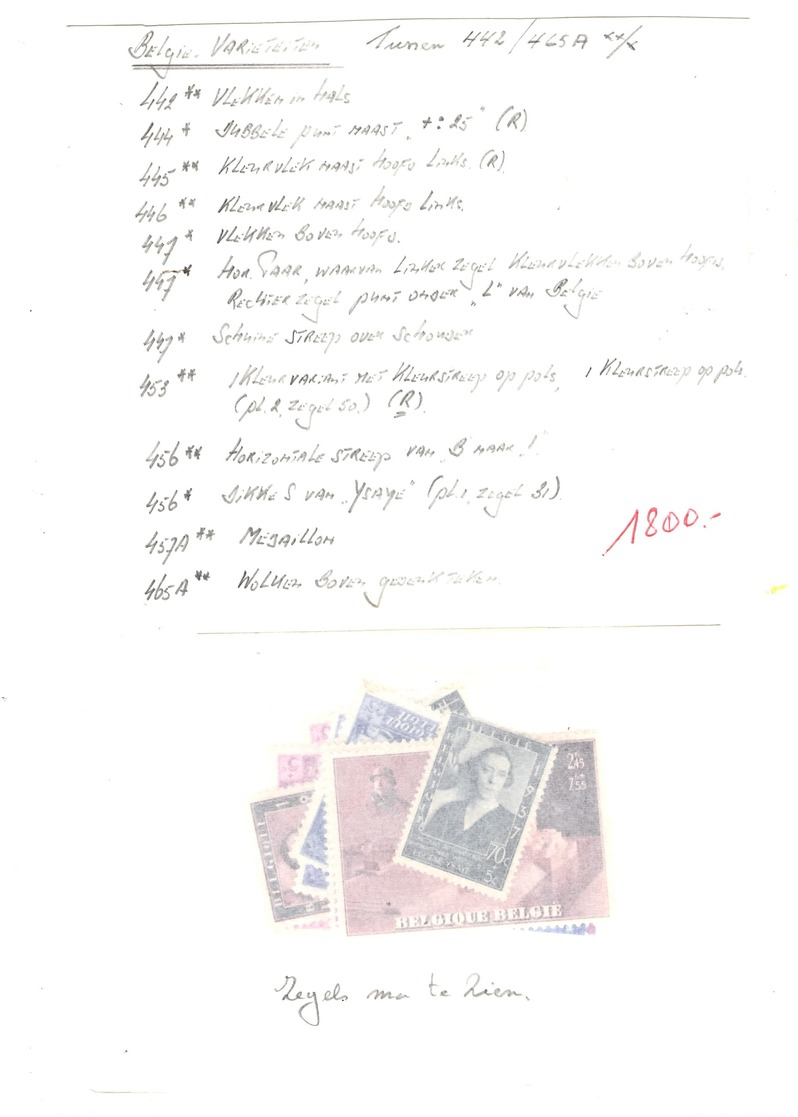 Belgie. VARIETEITEN Tussen 442/465A **/*
442** VLEKKEN in HALS
444* DUBBELE punt NAAST "+:25" (R)
445** KLEURVLEK NAAST HOOFD LINKS. (R).
446** KLEURVLEK NAAST HOOFD LINKS.
447* VLEKKEN BOVEN HOOFD.
447* HOR. PAAR, WAARVAN LINKER ZEGEL KLEURVLEKKEN BOVEN HOOFD,
RECHTER ZEGEL punt ONDER "L" VAN Belgie
447* Schuine STREEP OVER SCHOUDER
453** 1 KLEURVARIANT MET KLEURSTREEP op pols, 1 KLEURSTREEP op pols.
(pl.2, zegel 50.) (R).
456** HORIZONTALE STREEP VAN "B NAAR "I"
456* DIKKE S VAN "YSAYE" (pl.1, zegel 31).
457A** MEDAILLON
465A** WOLKEN BOVEN GEDENKTEKEN.
1800.-
BELGIE
BELGIQUE
1937
70c
5c
2.45
7.55
BELGIQUE BELGIË
BELGIQUE
Zegels na te zien.